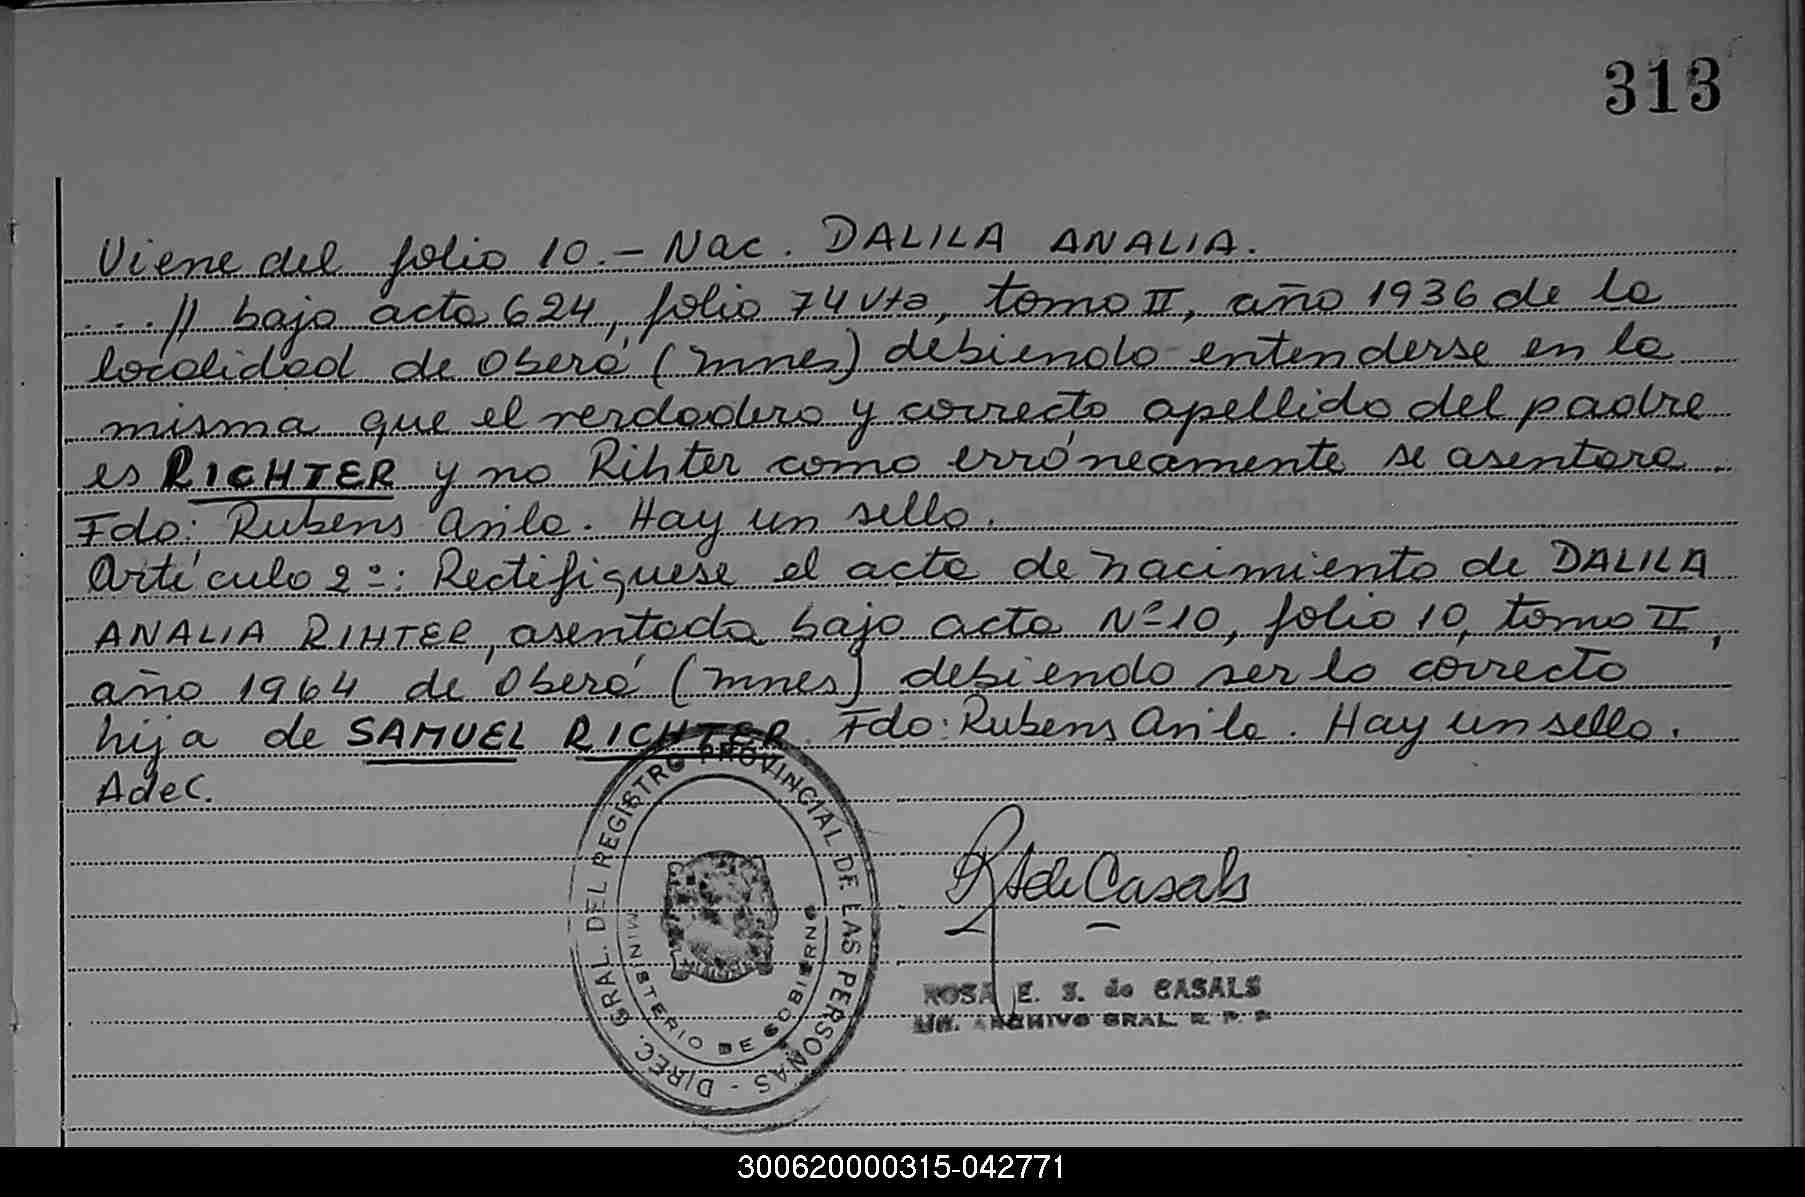 313
Viene del folio 10.- Nac. DALILA ANALIA.
...// bajo acta 624, folio 74 vta, tomo II, año 1936 de la
localidad de Oberá (Mnes) debiendo entenderse en la
misma que el verdadero y correcto apellido del padre
es RICHTER y no Rihter como erróneamente se asentara.
Fdo: Rubens Avila. Hay un sello.
Artículo 2º: Rectifiquese el acta de nacimiento de DALILA
ANALIA RIHTER, asentada bajo acta Nº 10, folio 10, tomo II,
año 1964 de Oberá (Mnes) debiendo ser lo correcto
hija de SAMUEL RICHTER. Fdo: Rubens Avila. Hay un sello.
AdeC.
DIREC. GRAL. DEL REGISTRO PROVINCIAL DE LAS PERSONAS -
MINISTERIO DE GOBIERNO
de Casals
ROSA E. S. de CASALS
ARCHIVO GRAL. R. P. P.
300620000315-042771